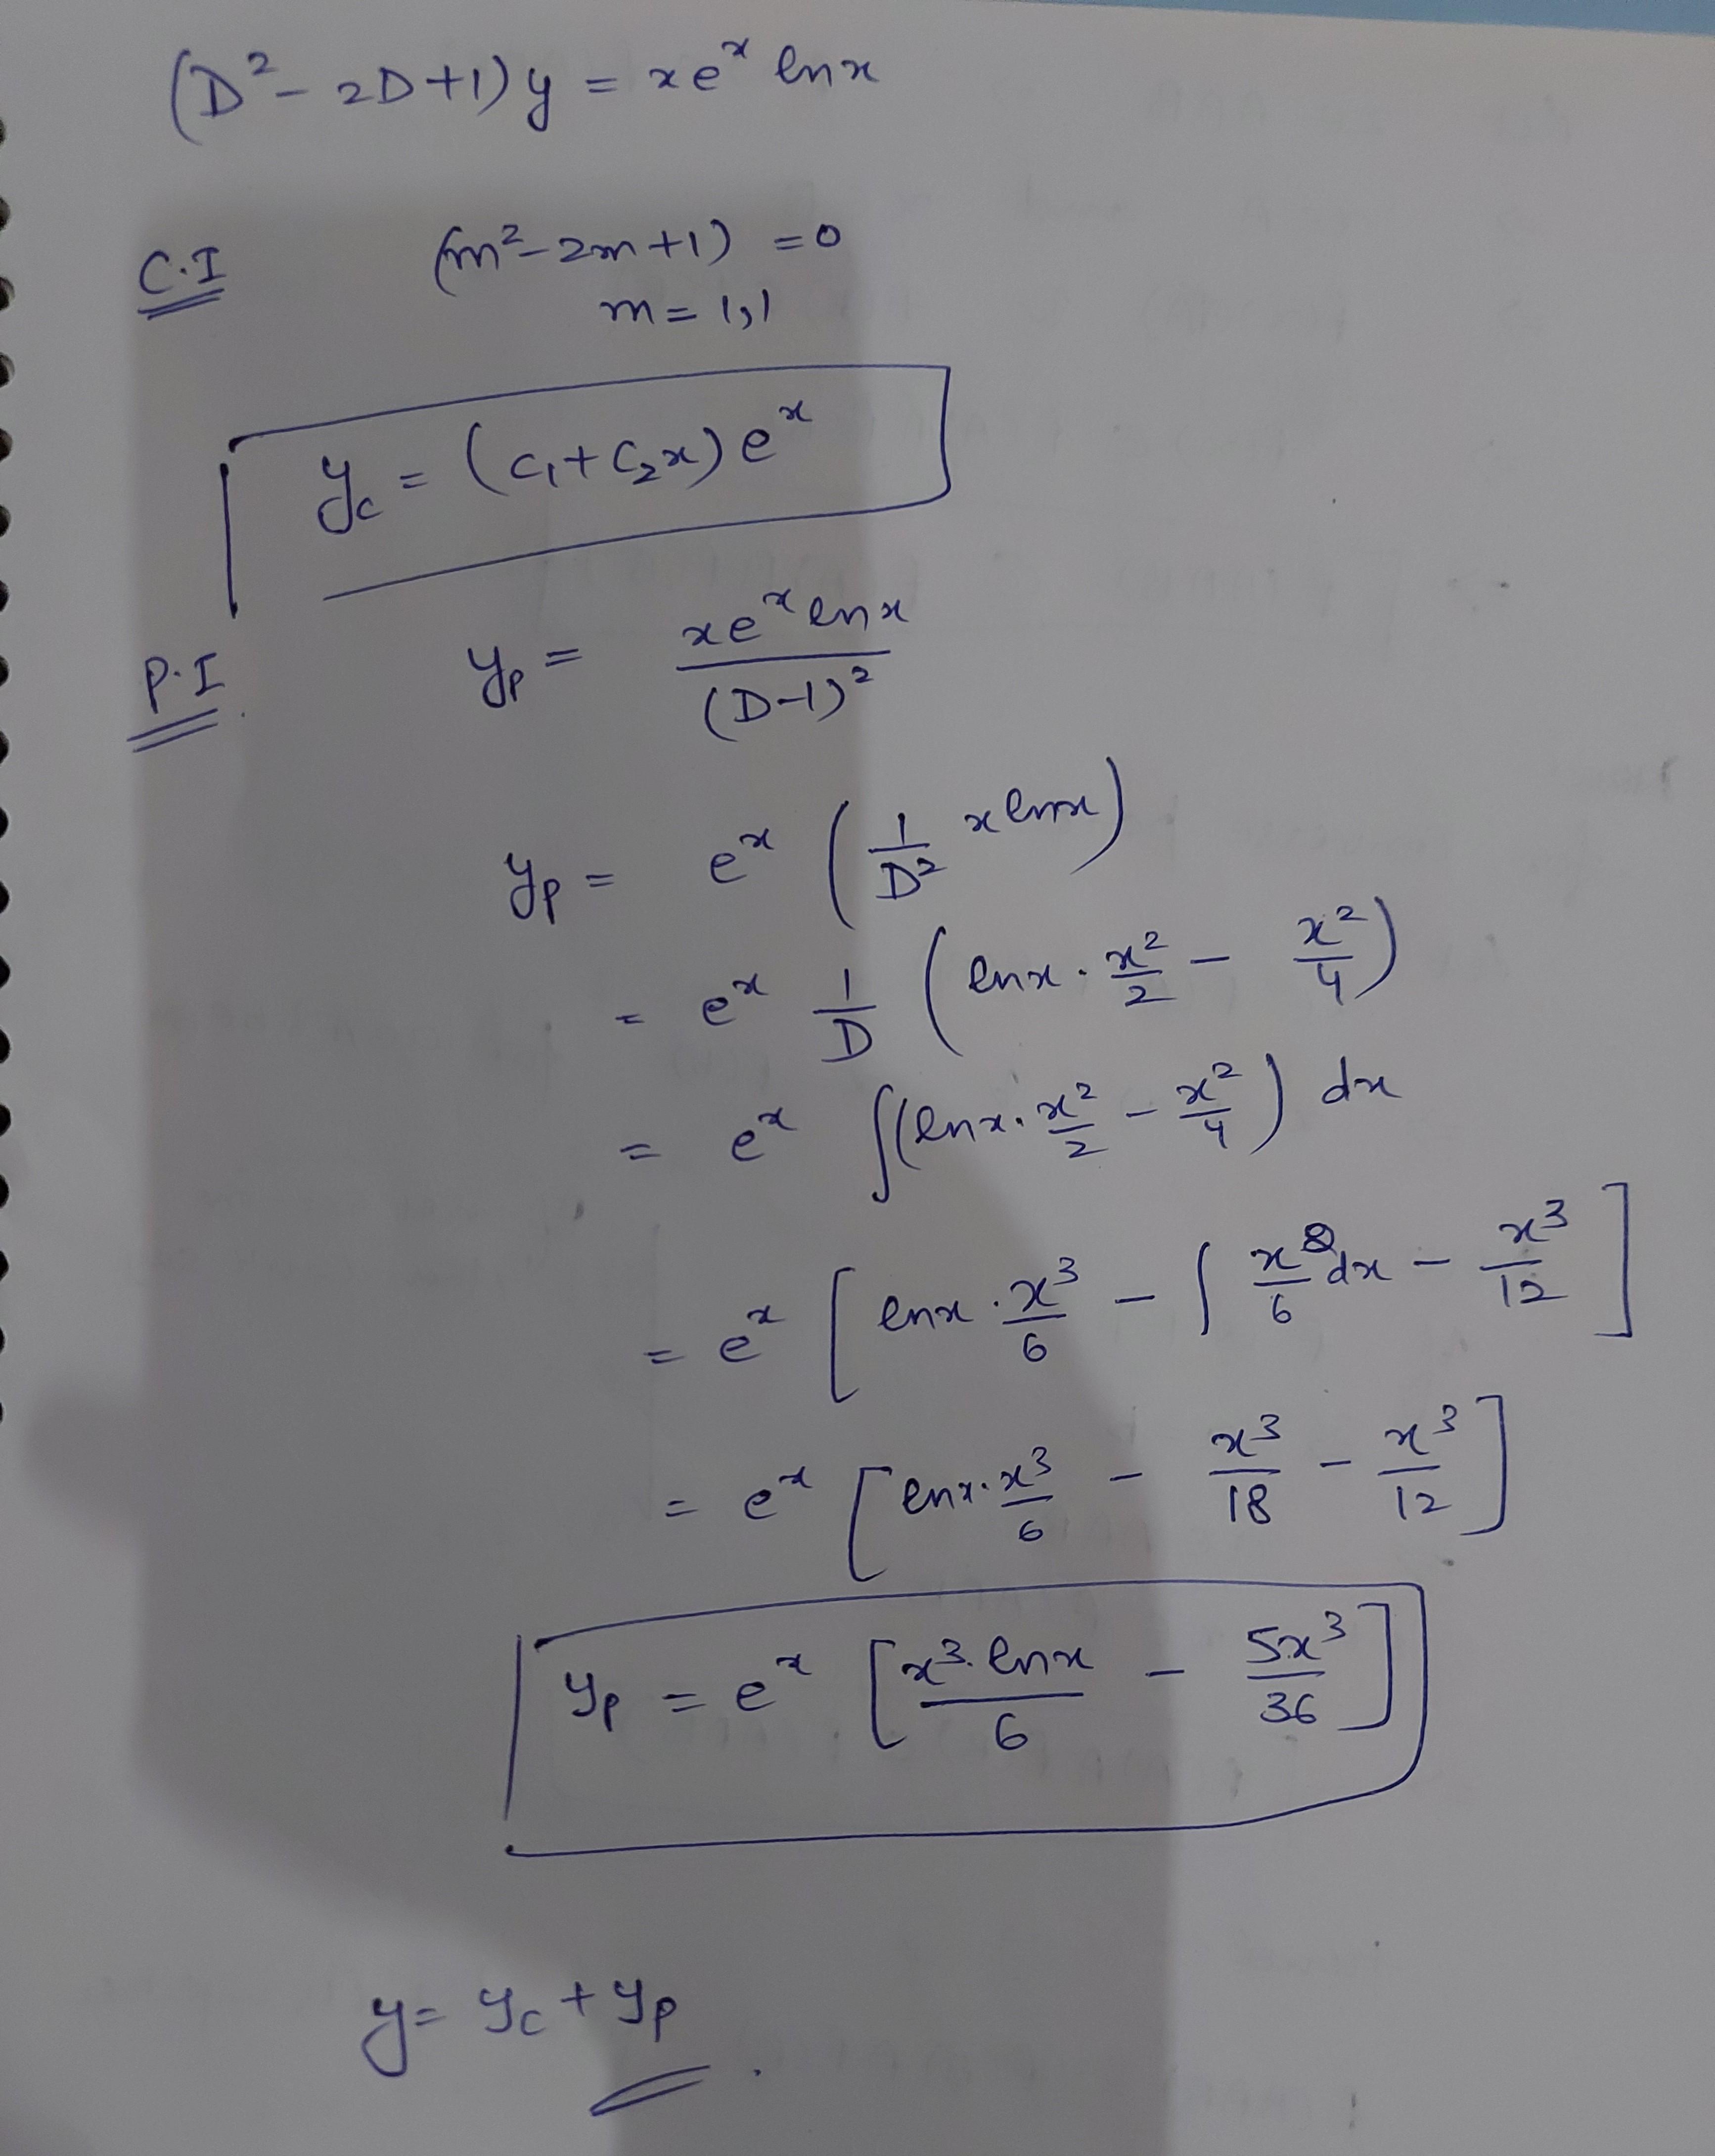 (D² - 2D + 1) y = x eˣ ln x
C.I (m² - 2m + 1) = 0
m = 1, 1
y_c = (c₁ + c₂x) eˣ
P.I. y_p = x eˣ ln x / (D-1)²
y_p = eˣ (1/D² x ln x)
= eˣ 1/D (ln x · x²/2 - x²/4)
= eˣ ∫(ln x · x²/2 - x²/4) dx
= eˣ [ln x · x³/6 - ∫ x²/6 dx - x³/12]
= eˣ [ln x · x³/6 - x³/18 - x³/12]
y_p = eˣ [x³ · ln x / 6 - 5x³/36]
y = y_c + y_p.